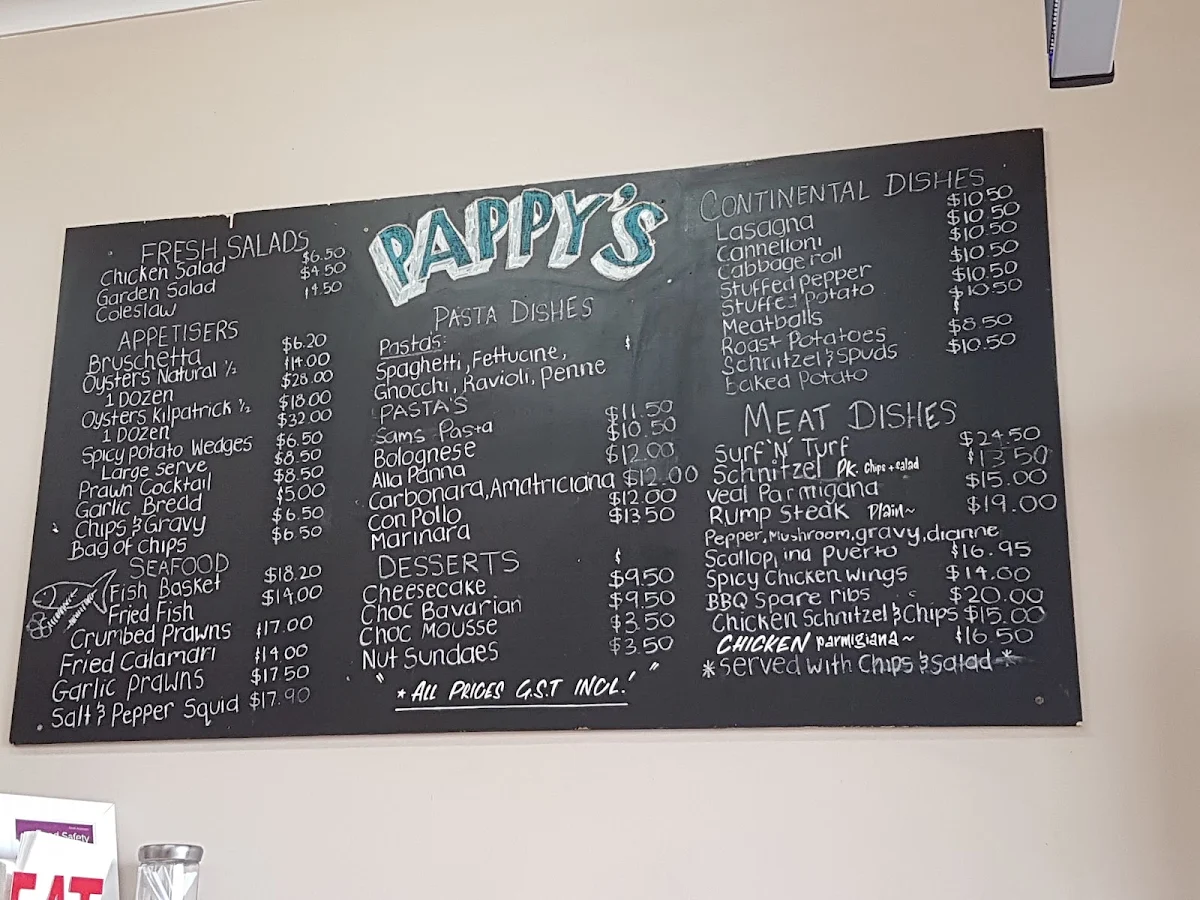 PAPPY'S
FRESH SALADS
Chicken Salad $6.50
Garden Salad $4.50
Coleslaw 14.50
APPETISERS
Bruschetta $6.20
Oysters Natural ½ $14.00
1 DOZEN $28.00
Oysters Kilpatrick ½ $18.00
1 DOZEN $32.00
Spicy Potato Wedges $6.50
Large serve $8.50
Prawn Cocktail $8.50
Garlic Bread $5.00
Chips & Gravy $6.50
Bag of Chips $6.50
SEAFOOD
Fish Basket $18.20
Fried Fish $14.00
Crumbed Prawns $17.00
Fried Calamari $14.00
Garlic Prawns $17.50
Salt & Pepper Squid $17.90
PASTA DISHES
Pasta's: $
Spaghetti, Fettucine,
Gnocchi, Ravioli, Penne
PASTA'S
Sams Pasta $11.50
Bolognese $10.50
Alla Panna $12.00
Carbonara, Amatriciana $12.00
Con Pollo $12.00
Marinara $13.50
DESSERTS $
Cheesecake $9.50
Choc Bavarian $9.50
Choc Mousse $3.50
Nut Sundaes $3.50
" * ALL PRICES G.S.T INCL.' "
CONTINENTAL DISHES
Lasagna $10.50
Cannelloni $10.50
Cabbage roll $10.50
Stuffed pepper $10.50
Stuffed Potato $10.50
Meatballs $10.50
Roast Potatoes $
Schnitzel & Spuds $8.50
Baked Potato $10.50
MEAT DISHES
Surf 'N' Turf $24.50
Schnitzel Pk. chips + salad $13.50
Veal Parmigana $15.00
Rump Steak Plain~ $19.00
Pepper, Mushroom, gravy, dianne
Scallop, ina Puerto $16.95
Spicy Chicken Wings $14.00
BBQ Spare ribs $20.00
Chicken Schnitzel & Chips $15.00
CHICKEN parmigiana~ $16.50
*served with Chips & Salad*
Safety
EAT